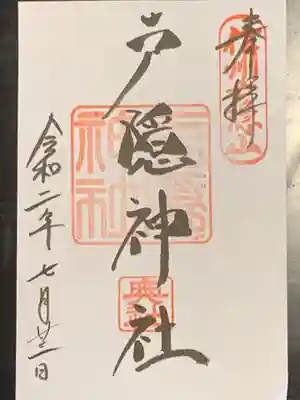 奉拝
戸隠神社
戸隠
神社
奥社
令和二年七月廿一日